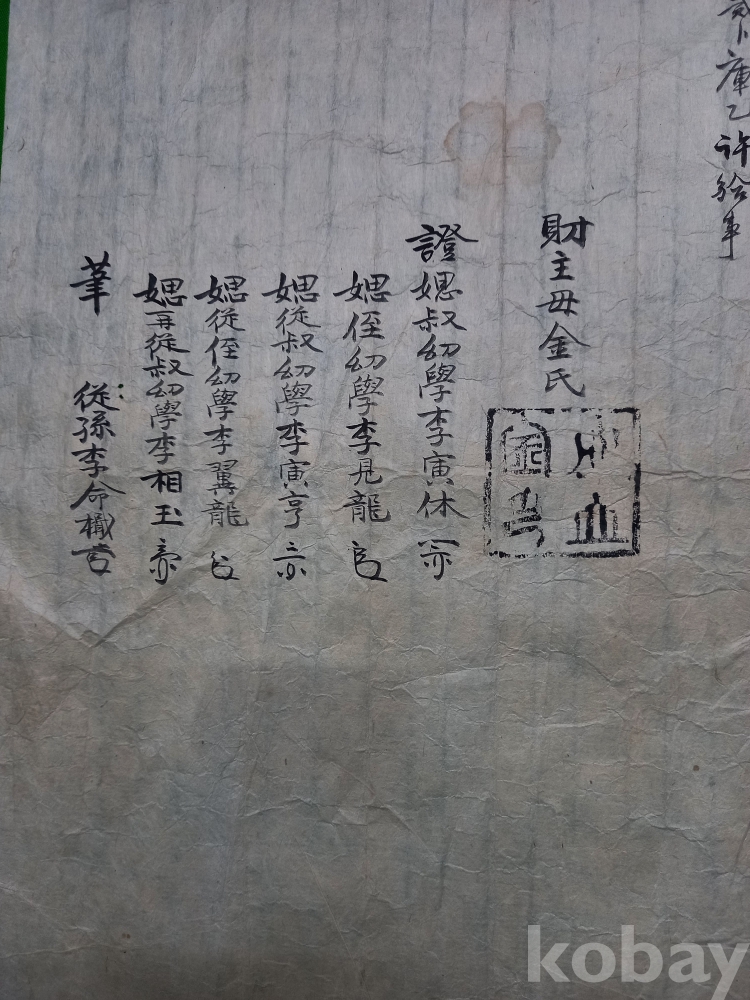 庫乙許給事
財主母金氏
證媤叔幼學李寅休
媤侄幼學李見龍
媤從叔幼學李寅亨
媤從侄幼學李翼龍
媤再從叔幼學李相玉
筆 從孫李命樴
kobay